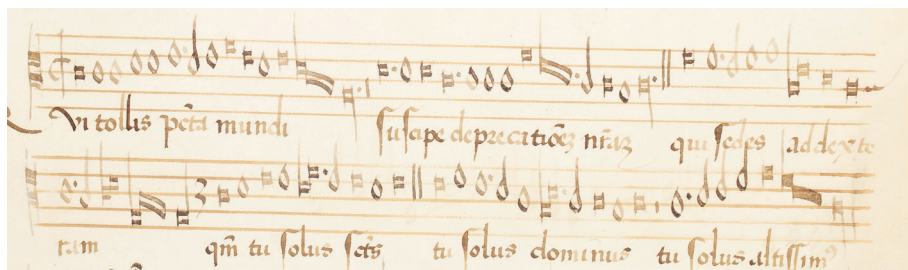 Vi tollis pctã mundi suscipe deprecatiõeз nrãз qui sedes ad dexte
ram qm̃ tu solus sctˢ tu solus dominus tu solus altissimꝰ